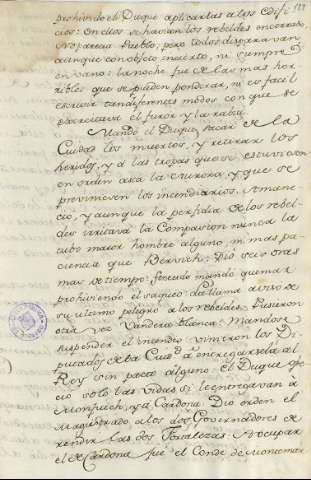 prohiviendo el Duque aplicarlas a los Edifi
cios: En ellos se havian los rebeldes encerrado,
no parecia Pueblo; pero todos disparavan
aunque con objeto incierto, ni siempre
en vano: la noche fue de las mas hor
ribles que se pueden ponderar, ni es facil
escrivir tan diferentes modos con que se
exercitava el furor y la rabia.
Mandó el Duque sacar de la
Ciudad los muertos, y retirar los
heridos, y á las tropas que se estuviesen
en orden asta la Aurora, y que se
previniesen los incendiarios. Amane
ció, y aunque la perfidia de los rebel
des irritava la Compasion nunca la
tubo maior hombre alguno, ni mas pa
ciencia que Bervich: Dió seis oras
mas de tiempo: fenecido mandó quemar
prohiviendo el saqueo: da llama aviso de
su ultimo peligro a los rebeldes. Pusieron
otra vez Vandera blanca: Mandose
suspender el incendio vinieron los Di
putados de la Ciud. á entregarsela al
Rey sin pacto alguno. El Duque ofre
ció solo las vidas si le entregavan á
Monjuich, y á Cardona. Dió orden el
Magistrado a los dos Governadores de
rendir las dos Fortalezas: A ocupar
el de Cardona fue el Conde de Montemar